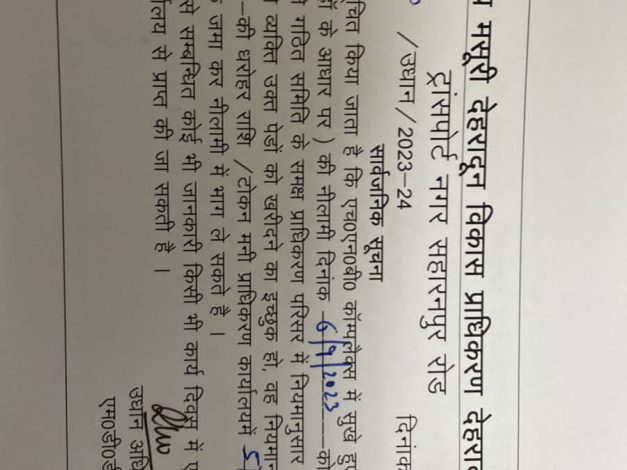 मसूरी देहरादून विकास प्राधिकरण
ट्रांसपोर्ट नगर सहारनपुर रोड
/उद्यान/2023-24 दिनांक
सार्वजनिक सूचना
किया जाता है कि एच०एन०बी० कॉम्पलैक्स में सूखे
के आधार पर ) की नीलामी दिनांक 6/9/2023 को
गठित समिति के समक्ष प्राधिकरण परिसर में नियमानुसार
व्यक्ति उक्त पेड़ों को खरीदने का इच्छुक हो, वह
की धरोहर राशि /टोकन मनी प्राधिकरण कार्यालयमें
जमा कर नीलामी में भाग ले सकते है ।
से सम्बन्धित कोई भी जानकारी किसी भी कार्य दिवस में
से प्राप्त की जा सकती है ।
उद्यान
एम०डी०